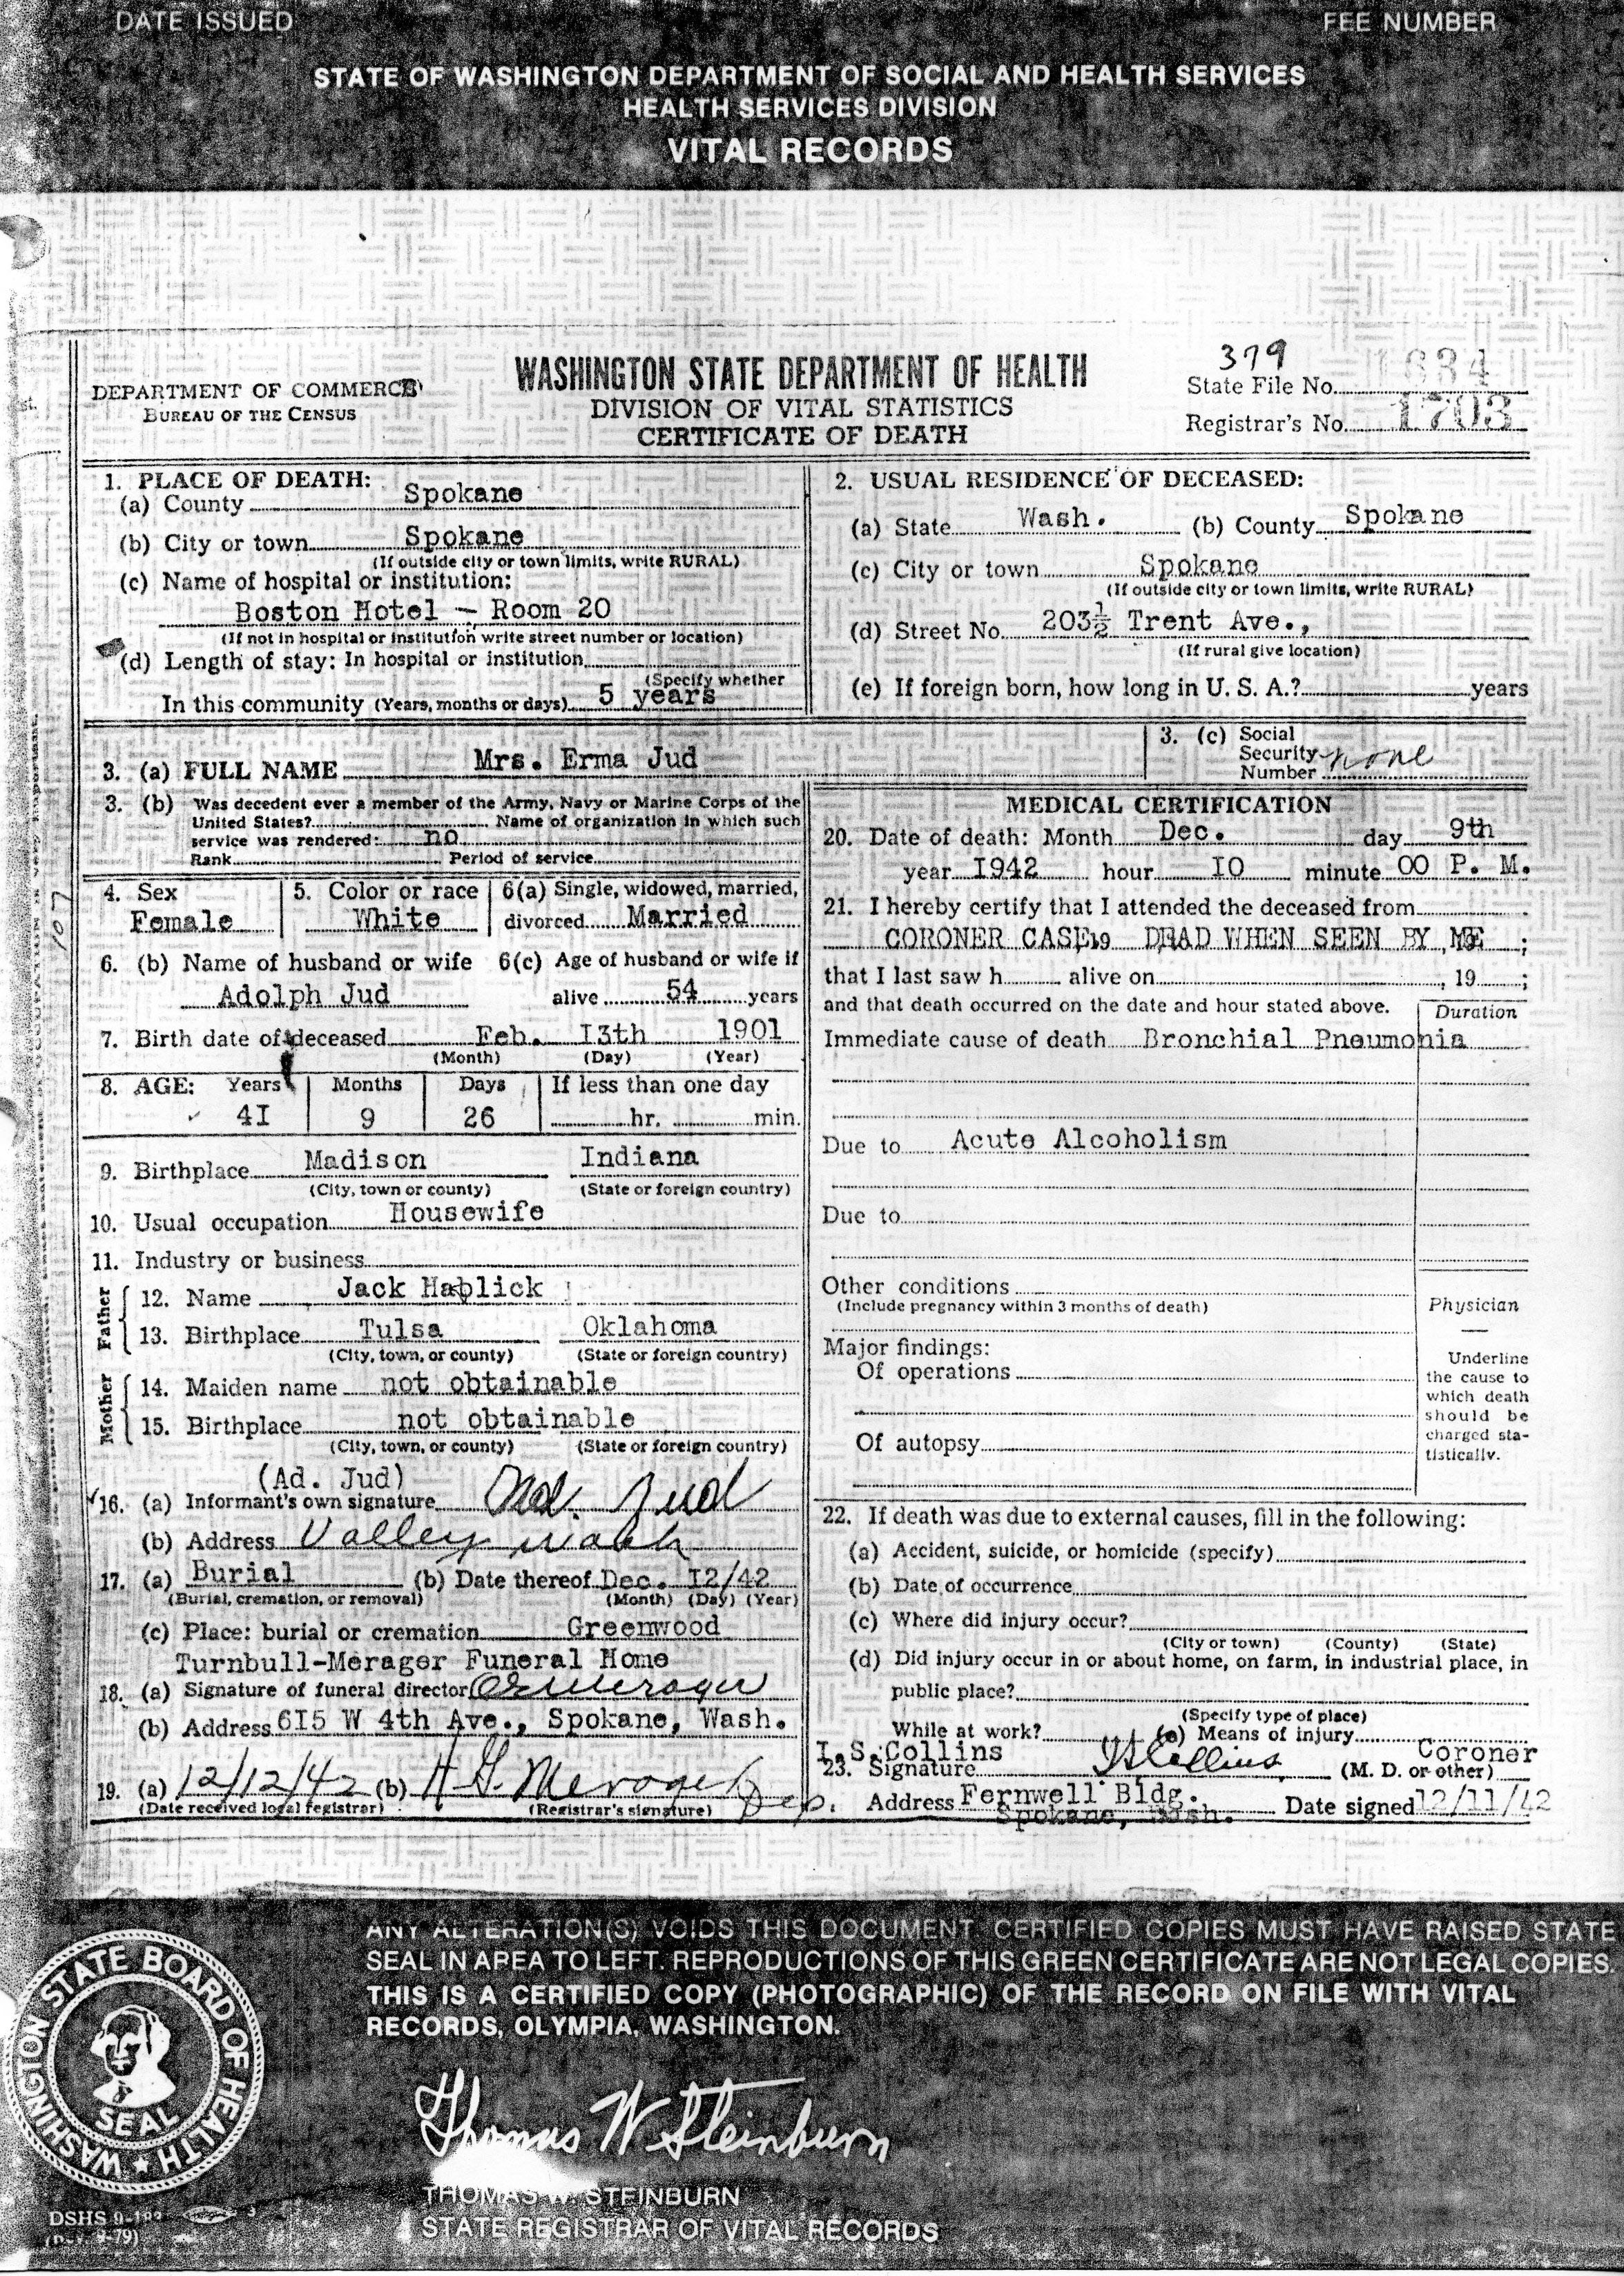 DATE ISSUED
FEE NUMBER
STATE OF WASHINGTON DEPARTMENT OF SOCIAL AND HEALTH SERVICES
HEALTH SERVICES DIVISION
VITAL RECORDS
DEPARTMENT OF COMMERCE
BUREAU OF THE CENSUS
WASHINGTON STATE DEPARTMENT OF HEALTH
DIVISION OF VITAL STATISTICS
CERTIFICATE OF DEATH
379
State File No. 1634
Registrar's No. 1703
1. PLACE OF DEATH:
(a) County Spokane
(b) City or town Spokane
(If outside city or town limits, write RURAL)
(c) Name of hospital or institution:
Boston Hotel - Room 20
(If not in hospital or institution write street number or location)
(d) Length of stay: In hospital or institution
(Specify whether
In this community (Years, months or days) 5 years
2. USUAL RESIDENCE OF DECEASED:
(a) State Wash. (b) County Spokane
(c) City or town Spokane
(If outside city or town limits, write RURAL)
(d) Street No. 203½ Trent Ave.,
(If rural give location)
(e) If foreign born, how long in U. S. A.? years
3. (a) FULL NAME Mrs. Erma Jud
3. (c) Social
Security
Number none
3. (b) Was decedent ever a member of the Army, Navy or Marine Corps of the
United States? Name of organization in which such
service was rendered: no
Rank Period of service
4. Sex
Female
5. Color or race
White
6(a) Single, widowed, married,
divorced Married
6. (b) Name of husband or wife
Adolph Jud
6(c) Age of husband or wife if
alive 54 years
7. Birth date of deceased Feb. I3th 1901
(Month) (Day) (Year)
8. AGE: Years Months Days If less than one day
4I 9 26 hr. min.
9. Birthplace Madison Indiana
(City, town or county) (State or foreign country)
10. Usual occupation Housewife
11. Industry or business
Father
12. Name Jack Hablick
13. Birthplace Tulsa Oklahoma
(City, town, or county) (State or foreign country)
Mother
14. Maiden name not obtainable
15. Birthplace not obtainable
(City, town, or county) (State or foreign country)
(Ad. Jud)
16. (a) Informant's own signature Ad. Jud
(b) Address Valley Wash
17. (a) Burial (b) Date thereof Dec. I2/42
(Burial, cremation, or removal) (Month) (Day) (Year)
(c) Place: burial or cremation Greenwood
Turnbull-Merager Funeral Home
18. (a) Signature of funeral director
(b) Address 6I5 W 4th Ave., Spokane, Wash.
19. (a) 12/12/42 (b) H G. Merager Dep.
(Date received local registrar) (Registrar's signature)
MEDICAL CERTIFICATION
20. Date of death: Month Dec. day 9th
year I942 hour I0 minute 00 P. M.
21. I hereby certify that I attended the deceased from
CORONER CASE, 19 DEAD WHEN SEEN BY ME ;
that I last saw h alive on , 19 ;
and that death occurred on the date and hour stated above.
Duration
Immediate cause of death Bronchial Pneumonia
Due to Acute Alcoholism
Due to
Other conditions
(Include pregnancy within 3 months of death)
Major findings:
Of operations
Of autopsy
Physician
Underline
the cause to
which death
should be
charged sta-
tistically.
22. If death was due to external causes, fill in the following:
(a) Accident, suicide, or homicide (specify)
(b) Date of occurrence
(c) Where did injury occur?
(City or town) (County) (State)
(d) Did injury occur in or about home, on farm, in industrial place, in
public place?
(Specify type of place)
While at work? (e) Means of injury
I. S. Collins Coroner
23. Signature I S Collins (M. D. or other)
Address Fernwell Bldg. Date signed 12/11/42
Spokane, Wash.
107
ANY ALTERATION(S) VOIDS THIS DOCUMENT. CERTIFIED COPIES MUST HAVE RAISED STATE
SEAL IN AREA TO LEFT. REPRODUCTIONS OF THIS GREEN CERTIFICATE ARE NOT LEGAL COPIES.
THIS IS A CERTIFIED COPY (PHOTOGRAPHIC) OF THE RECORD ON FILE WITH VITAL
RECORDS, OLYMPIA, WASHINGTON.
WASHINGTON STATE BOARD OF HEALTH
SEAL
Thomas W Steinburn
THOMAS W. STEINBURN
STATE REGISTRAR OF VITAL RECORDS
DSHS